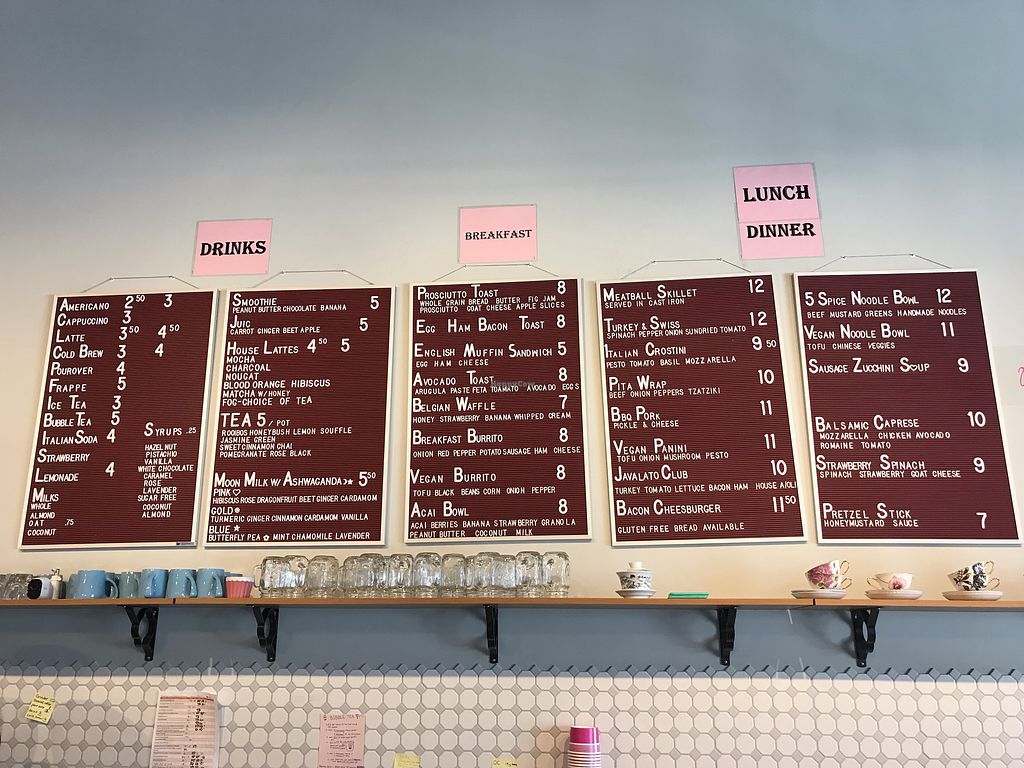 DRINKS
BREAKFAST
LUNCH
DINNER
AMERICANO 2 50 3
CAPPUCCINO 3
LATTE 3 50 4 50
COLD BREW 3 4
POUROVER 4
FRAPPE 5
ICE TEA 3
BUBBLE TEA 5
ITALIAN SODA 4
STRAWBERRY
LEMONADE 4
MILKS
WHOLE
ALMOND
OAT .75
COCONUT
SYRUPS .25
HAZELNUT
PISTACHIO
VANILLA
WHITE CHOCOLATE
CARAMEL
ROSE
LAVENDER
SUGAR FREE
COCONUT
ALMOND
SMOOTHIE 5
PEANUT BUTTER CHOCOLATE BANANA
JUIC 5
CARROT GINGER BEET APPLE
HOUSE LATTES 4 50 5
MOCHA
CHARCOAL
NOUGAT
BLOOD ORANGE HIBISCUS
MATCHA W/HONEY
FOG-CHOICE OF TEA
TEA 5 / POT
ROOIBOS HONEYBUSH LEMON SOUFFLE
JASMINE GREEN
SWEET CINNAMON CHAI
POMEGRANATE ROSE BLACK
MOON MILK W/ ASHWAGANDA 5 50
PINK ♡
HIBISCUS ROSE DRAGONFRUIT BEET GINGER CARDAMOM
GOLD
TURMERIC GINGER CINNAMON CARDAMOM VANILLA
BLUE
BUTTERFLY PEA MINT CHAMOMILE LAVENDER
PROSCIUTTO TOAST 8
WHOLE GRAIN BREAD BUTTER FIG JAM
PROSCIUTTO GOAT CHEESE APPLE SLICES
EGG HAM BACON TOAST 8
ENGLISH MUFFIN SANDWICH 5
EGG HAM CHEESE
AVOCADO TOAST 8
ARUGULA PASTE FETA TOAMATO AVOCADO EGGS
BELGIAN WAFFLE 7
HONEY STRAWBERRY BANANA WHIPPED CREAM
BREAKFAST BURRITO 8
ONION RED PEPPER POTATO SAUSAGE HAM CHEESE
VEGAN BURRITO 8
TOFU BLACK BEANS CORN ONION PEPPER
ACAI BOWL 8
ACAI BERRIES BANANA STRAWBERRY GRANOLA
PEANUT BUTTER COCONUT MILK
MEATBALL SKILLET 12
SERVED IN CAST IRON
TURKEY & SWISS 12
SPINACH PEPPER ONION SUNDRIED TOMATO
ITALIAN CROSTINI 9 50
PESTO TOMATO BASIL MOZZARELLA
PITA WRAP 10
BEEF ONION PEPPERS TZATZIKI
BBQ PORK 11
PICKLE & CHEESE
VEGAN PANINI 11
TOFU ONION MUSHROOM PESTO
JAVALATO CLUB 10
TURKEY TOMATO LETTUCE BACON HAM HOUSE AIOLI
BACON CHEESBURGER 11 50
GLUTEN FREE BREAD AVAILABLE
5 SPICE NOODLE BOWL 12
BEEF MUSTARD GREENS HANDMADE NOODLES
VEGAN NOODLE BOWL 11
TOFU CHINESE VEGGIES
SAUSAGE ZUCCHINI SOUP 9
BALSAMIC CAPRESE 10
MOZZARELLA CHICKEN AVOCADO
ROMAINE TOMATO
STRAWBERRY SPINACH 9
SPINACH STRAWBERRY GOAT CHEESE
PRETZEL STICK 7
HONEYMUSTARD SAUCE
BUBBLE TEA